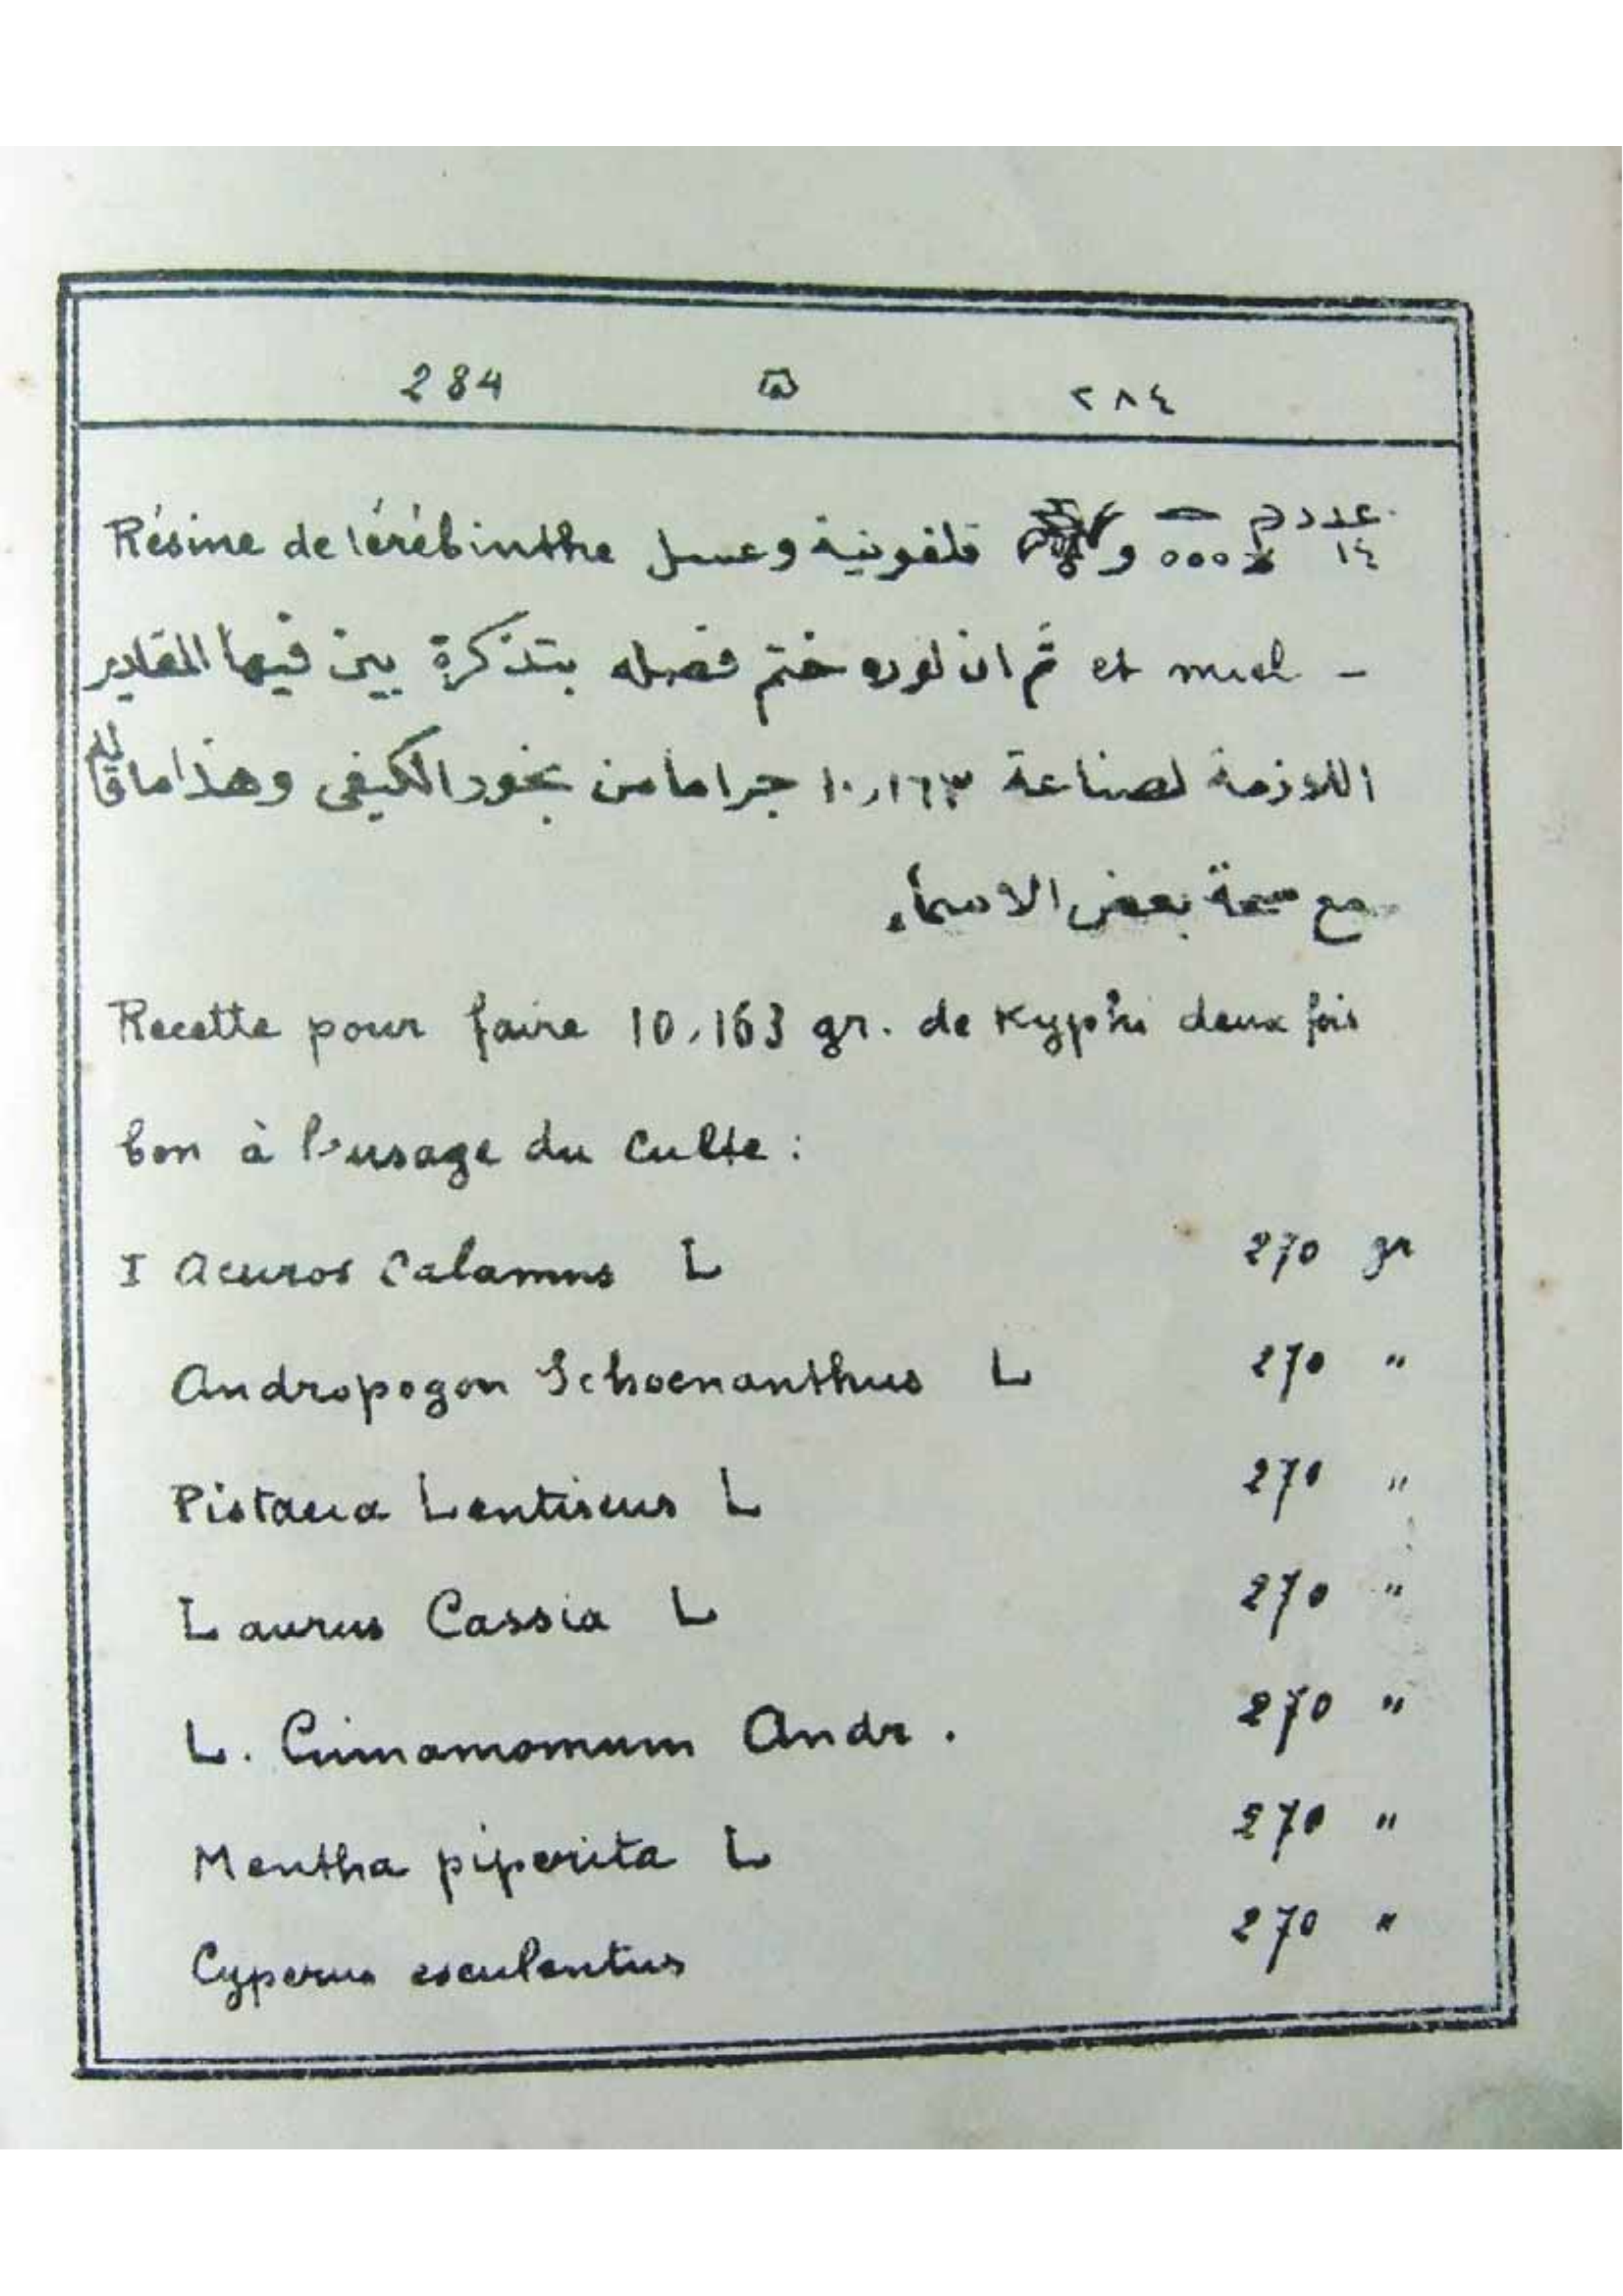 284 ٢٨٤
عدد ١٤ و قلفونية وعسل Résine de térébinthe
et miel - ثم ان لوره ختم فصله بتذكرة بين فيها المقادير
اللازمة لصناعة ١٠,١٦٣ جراما من بخور الكيفى وهذا ما قاله
مع بعض الاسماء
Recette pour faire 10,163 gr. de Kyphi deux fois
bon à l'usage du culte :
I Acuros Calamus L 270 gr
Andropogon Schoenanthus L 270 "
Pistacia Lentiscus L 270 "
Laurus Cassia L 270 "
L. Cinnamomum Andr. 270 "
Mentha piperita L 270 "
Cyperus esculentus 270 "